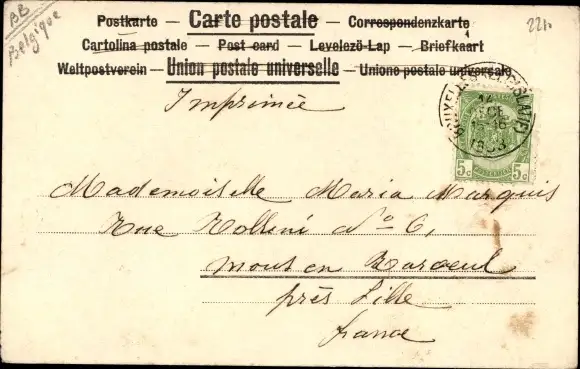 BB
Belgique
Postkarte – Carte postale – Correspondenzkarte
Cartolina postale – Post card – Levelező-Lap – Briefkaart
Weltpostverein – Union postale universelle – Unione postale universale
Imprimée
BRUXELLES
14
DEC
1903
5c 5c
Mademoiselle Maria Marquis
Rue Rollini No 6,
Mous en Baroeul
près Lille
france